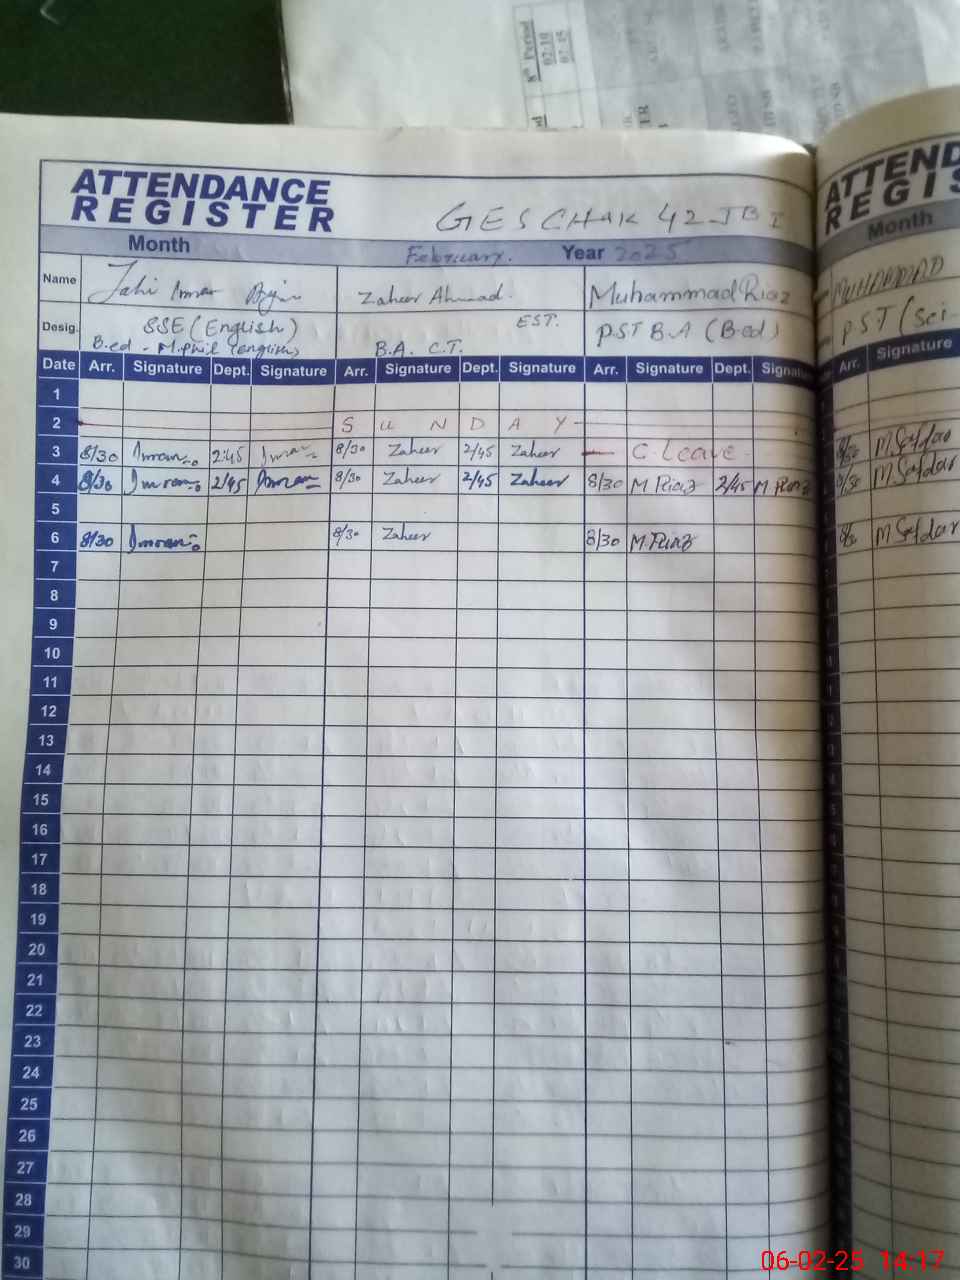 8th Period
02:10
07:45
ATTENDANCE
REGISTER
GES CHAK 42-JB
Month February. Year 2025
Name Imran Zaheer Ahmad. Muhammad Riaz
Desig. SSE (English) EST. PST B.A (B.ed)
B.ed - M.Phil (english) B.A. C.T.
Date Arr. Signature Dept. Signature Arr. Signature Dept. Signature Arr. Signature Dept. Signature
1
2 SUNDAY
3 8/30 Imran 2:45 Imran 8/30 Zaheer 2/45 Zaheer C. Leave
4 8/30 Imran 2/45 Imran 8/30 Zaheer 2/45 Zaheer 8/30 M Riaz 2/45 M Riaz
5
6 8/30 Imran 8/30 Zaheer 8/30 M.Riaz
7
8
9
10
11
12
13
14
15
16
17
18
19
20
21
22
23
24
25
26
27
28
29
30
ATTEND
REGIS
Month
MUHAMMAD
PST (Sci-
Arr. Signature
8/30 M.Safdar
8/30 M.Safdar
8/30 M Safdar
06-02-25 14:17